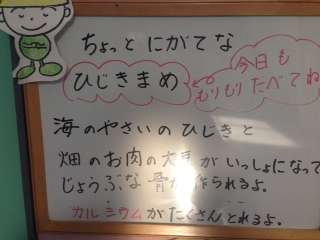 ちょっと にがてな
ひじきまめ
今日も
もりもり たべてね
海のやさいの ひじきと
畑のお肉の大豆が いっしょになって
じょうぶな 骨が作られるよ。
カルシウムが たくさん とれるよ。